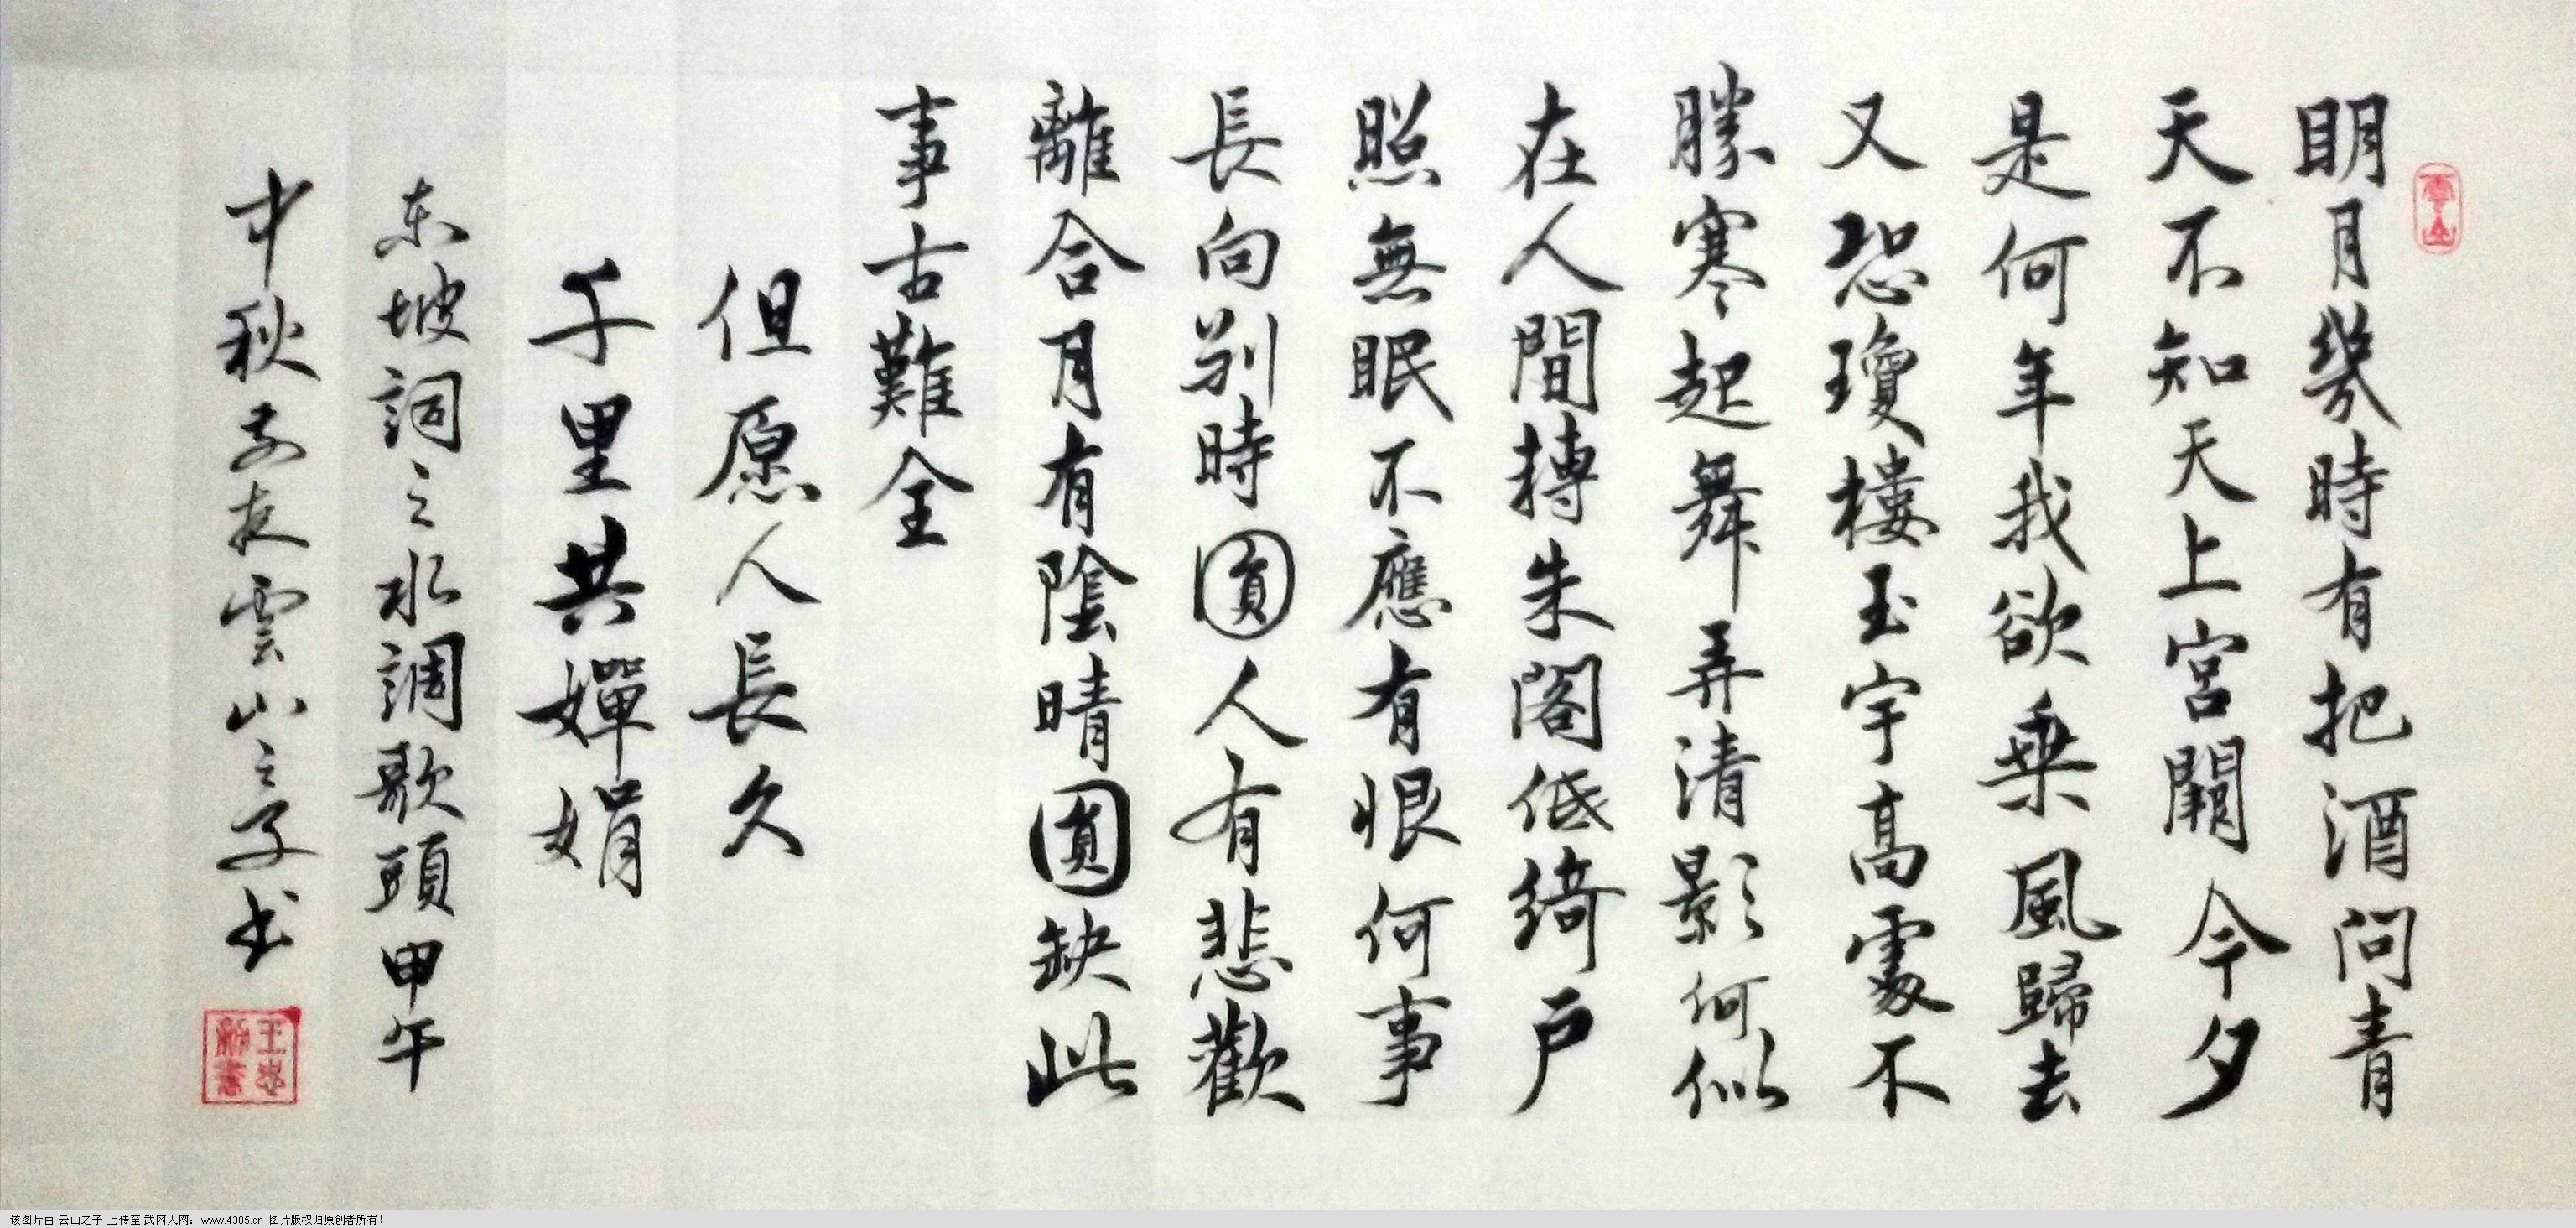 雲山
明月幾時有把酒問青
天不知天上宮闕今夕
是何年我欲乗風歸去
又恐瓊樓玉宇高處不
勝寒起舞弄清影何似
在人間轉朱閣低綺戶
照無眠不應有恨何事
長向别時圓人有悲歡
離合月有陰晴圓缺此
事古難全
但愿人長久
千里共嬋娟
东坡詞之水調歌頭甲午
中秋子夜雲山之子书
该图片由 云山之子 上传至 武冈人网：www.4305.cn 图片版权归原创者所有！